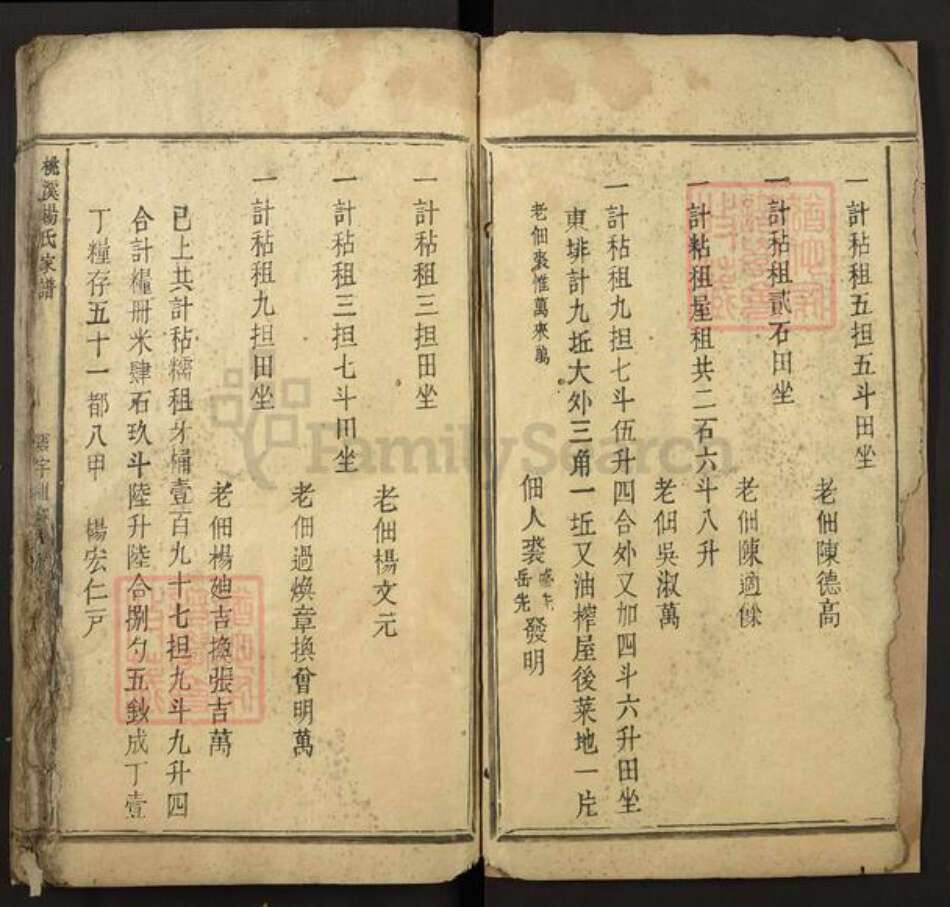 一計秥租五担五斗田坐
老佃陳德高
一計秥租貳石田坐
老佃陳適
一計粘租屋租共二石六斗八升
老佃吳淑萬
一計秥租九担七斗伍升四合外又加四斗六升田坐
東排計九坵大外三角一坵又油榨屋後菜地一片
老佃裘惟萬來萬
佃人裘 岳先 發明
一計秥租三担田坐
老佃楊文元
一計秥租三担七斗田坐
老佃過煥章換曾明萬
一計秥租九担田坐
老佃楊廸吉換張吉萬
已上共計秥糯租牙桶壹百九十七担九斗九升四
合計糧冊米肆石玖斗陸升陸合捌勺五鈔成丁壹
丁糧存五十一都八甲 楊宏仁戸
桃溪楊氏家譜
FamilySearch